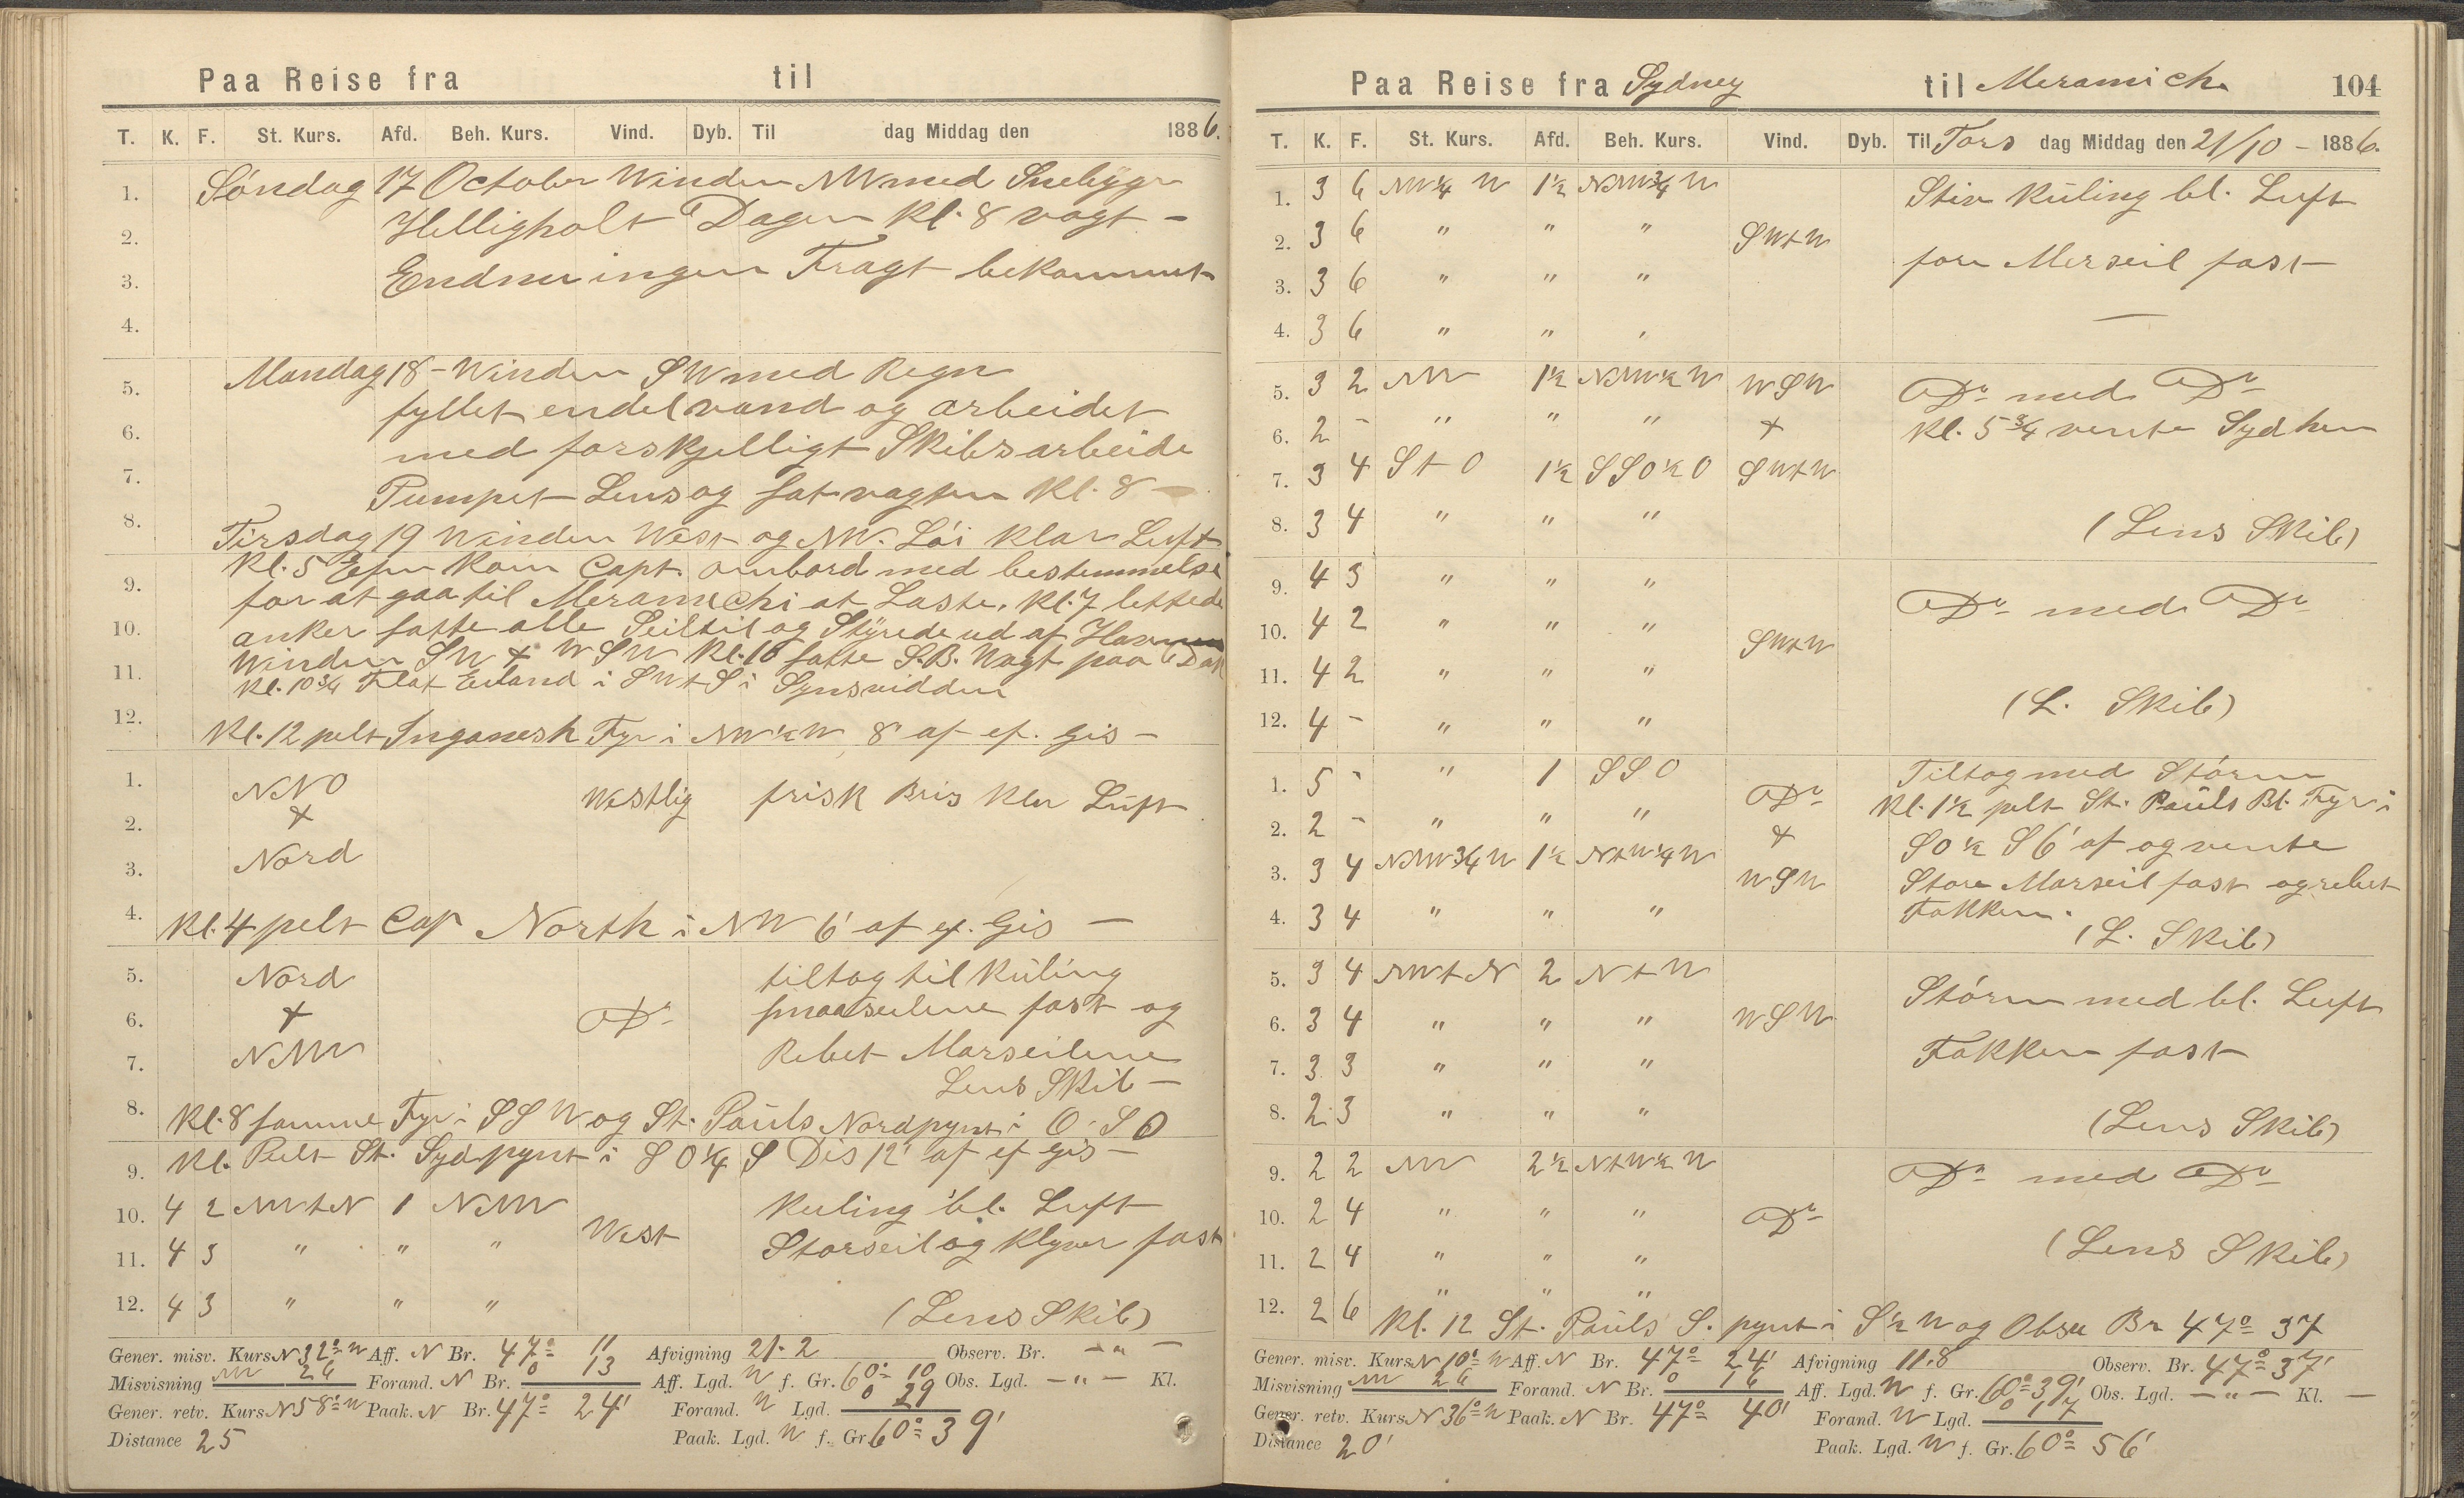 Paa Reise fra til
T. K. F. St. Kurs. Afd. Beh. Kurs. Vind. Dyb. Til dag Middag den 1886.
1. Søndag 17 October Winden NW med Snebyger
2. Helligholt Dagen Kl. 8 vagt -
3. Endnu ingen Fragt bekommet
4.
5. Mandag 18 - Winden SW med Regn
fyllet endel vand og arbeidet
6. med forskjelligt Skibsarbeide
7. Pumpet Lens og sat vagten Kl. 8 -
8. Tirsdag 19 Winden West og NW. Løi klar Luft
Kl. 5 Efm kom Capt. ombord med bestemmelse
9. for at gaa til Meramichi at Laste. Kl. 7 lettede
10. anker satte alle Seil til og Styrede ud af Havnen
Winden SW + WSW Kl. 10 satte S.B. Vagt paa Dæk
11. Kl. 10 3/4 Flat Eiland i SWtS i Synsvidden
12. Kl. 12 pelt Inganesh Fyr i NW 1/2 W 8' af ef. Gis -
1. NNO Westlig frisk Bris klar Luft
2. +
3. Nord
4. Kl. 4 pelt Cap North i NW 6' af ef. Gis -
5. Nord tiltog til Küling
6. + Do smaaseilene fast og
7. NNW Rebet Merseilene
Lens Skib -
8. Kl. 8 samme Fyr i SSW og St. Paüls Nordpynt i O.SO
9. Kl. Pelt St. Sydpynt i SO 1/4 S Dis 12' af ef Gis -
10. 4 2 NWtN 1 NNW Kuling bl. Luft
11. 4 3 " " " West Storseil og Klyver fast
12. 4 3 " " " (Lens Skib)
Gener. misv. Kurs N 32° W Aff. N Br. 47° 11 Afvigning 21.2 Observ. Br. - " -
Misvisning NW 26 Forand. N Br. 0 13 Aff. Lgd. W f. Gr. 60° 10 Obs. Lgd. - " - Kl.
Gener. retv. Kurs N 58° W Paak. N Br. 47° 24' Forand. W Lgd. 0 29
Distance 25 Paak. Lgd. W f. Gr. 60° 39'
Paa Reise fra Sydney til Meramich. 104
T. K. F. St. Kurs. Afd. Beh. Kurs. Vind. Dyb. Til Tors dag Middag den 21/10 - 1886.
1. 3 6 NW 1/4 W 1 1/2 NNW 3/4 W Stiv Küling bl. Luft
2. 3 6 " " " SWtW
3. 3 6 " " " fore Merseil fast
4. 3 6 " " "
5. 3 2 NW 1 1/2 NNW 1/2 W WSW Do med Do
6. 2 - " " " + Kl. 5 3/4 vente Sydhen
7. 3 4 StO 1 1/2 SSO 1/2 O SWtW
8. 3 4 " " " (Lens Skib)
9. 4 3 " " "
10. 4 2 " " " SWtW Do med Do
11. 4 2 " " "
12. 4 - " " " (L. Skib)
1. 5 - " 1 SSO Do Tiltog med Störm
2. 2 - " " " + Kl. 1 1/2 pelt St. Paüls Bl. Fyr i
3. 3 4 NNW 3/4 W 1 1/2 NtW 1/4 W WSW SO 1/2 S 6' af og vente
4. 3 4 " " " Store Merseil fast og rebet
Fokken. (L. Skib)
5. 3 4 NWtN 2 NtW
6. 3 4 " " " WSW Störm med bl. Luft
7. 3 3 " " " Fokken fast
8. 2 3 " " " (Lens Skib)
9. 2 2 NW 2 1/2 NtW 1/2 W Do med Do
10. 2 4 " " " Do
11. 2 4 " " " (Lens Skib)
12. 2 6 " " "
Kl. 12 St. Paüls S. pynt i S 1/2 W og Obser Br 47° 37
Gener. misv. Kurs N 10° W Aff. N Br. 47° 24' Afvigning 11.8 Observ. Br. 47° 37'
Misvisning NW 26 Forand. N Br. 0 16 Aff. Lgd. W f. Gr. 60° 39' Obs. Lgd. - " - Kl. -
Gener. retv. Kurs N 36° W Paak. N Br. 47° 40' Forand. W Lgd. 0 17
Distance 20' Paak. Lgd. W f. Gr. 60° 56'